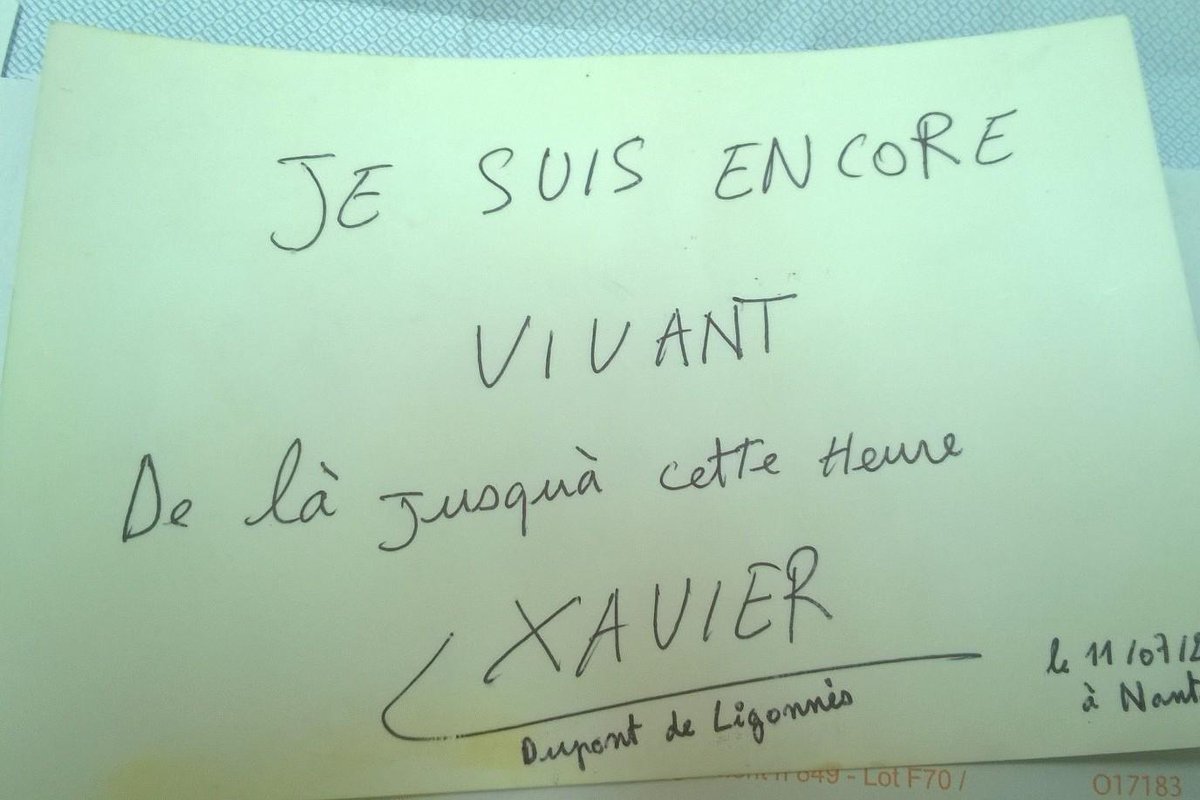 JE SUIS ENCORE
VIVANT
De là jusqu'à cette Heure
XAVIER
Dupont de Ligonnès
le 11/07/2
à Nant
849 - Lot F70 /
O17183